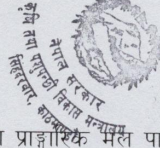 नेपाल सरकार
कृषि तथा पशुपन्छी विकास मन्त्रालय
सिंहदरबार, काठमाडौं
प्राङ्गारिक मल